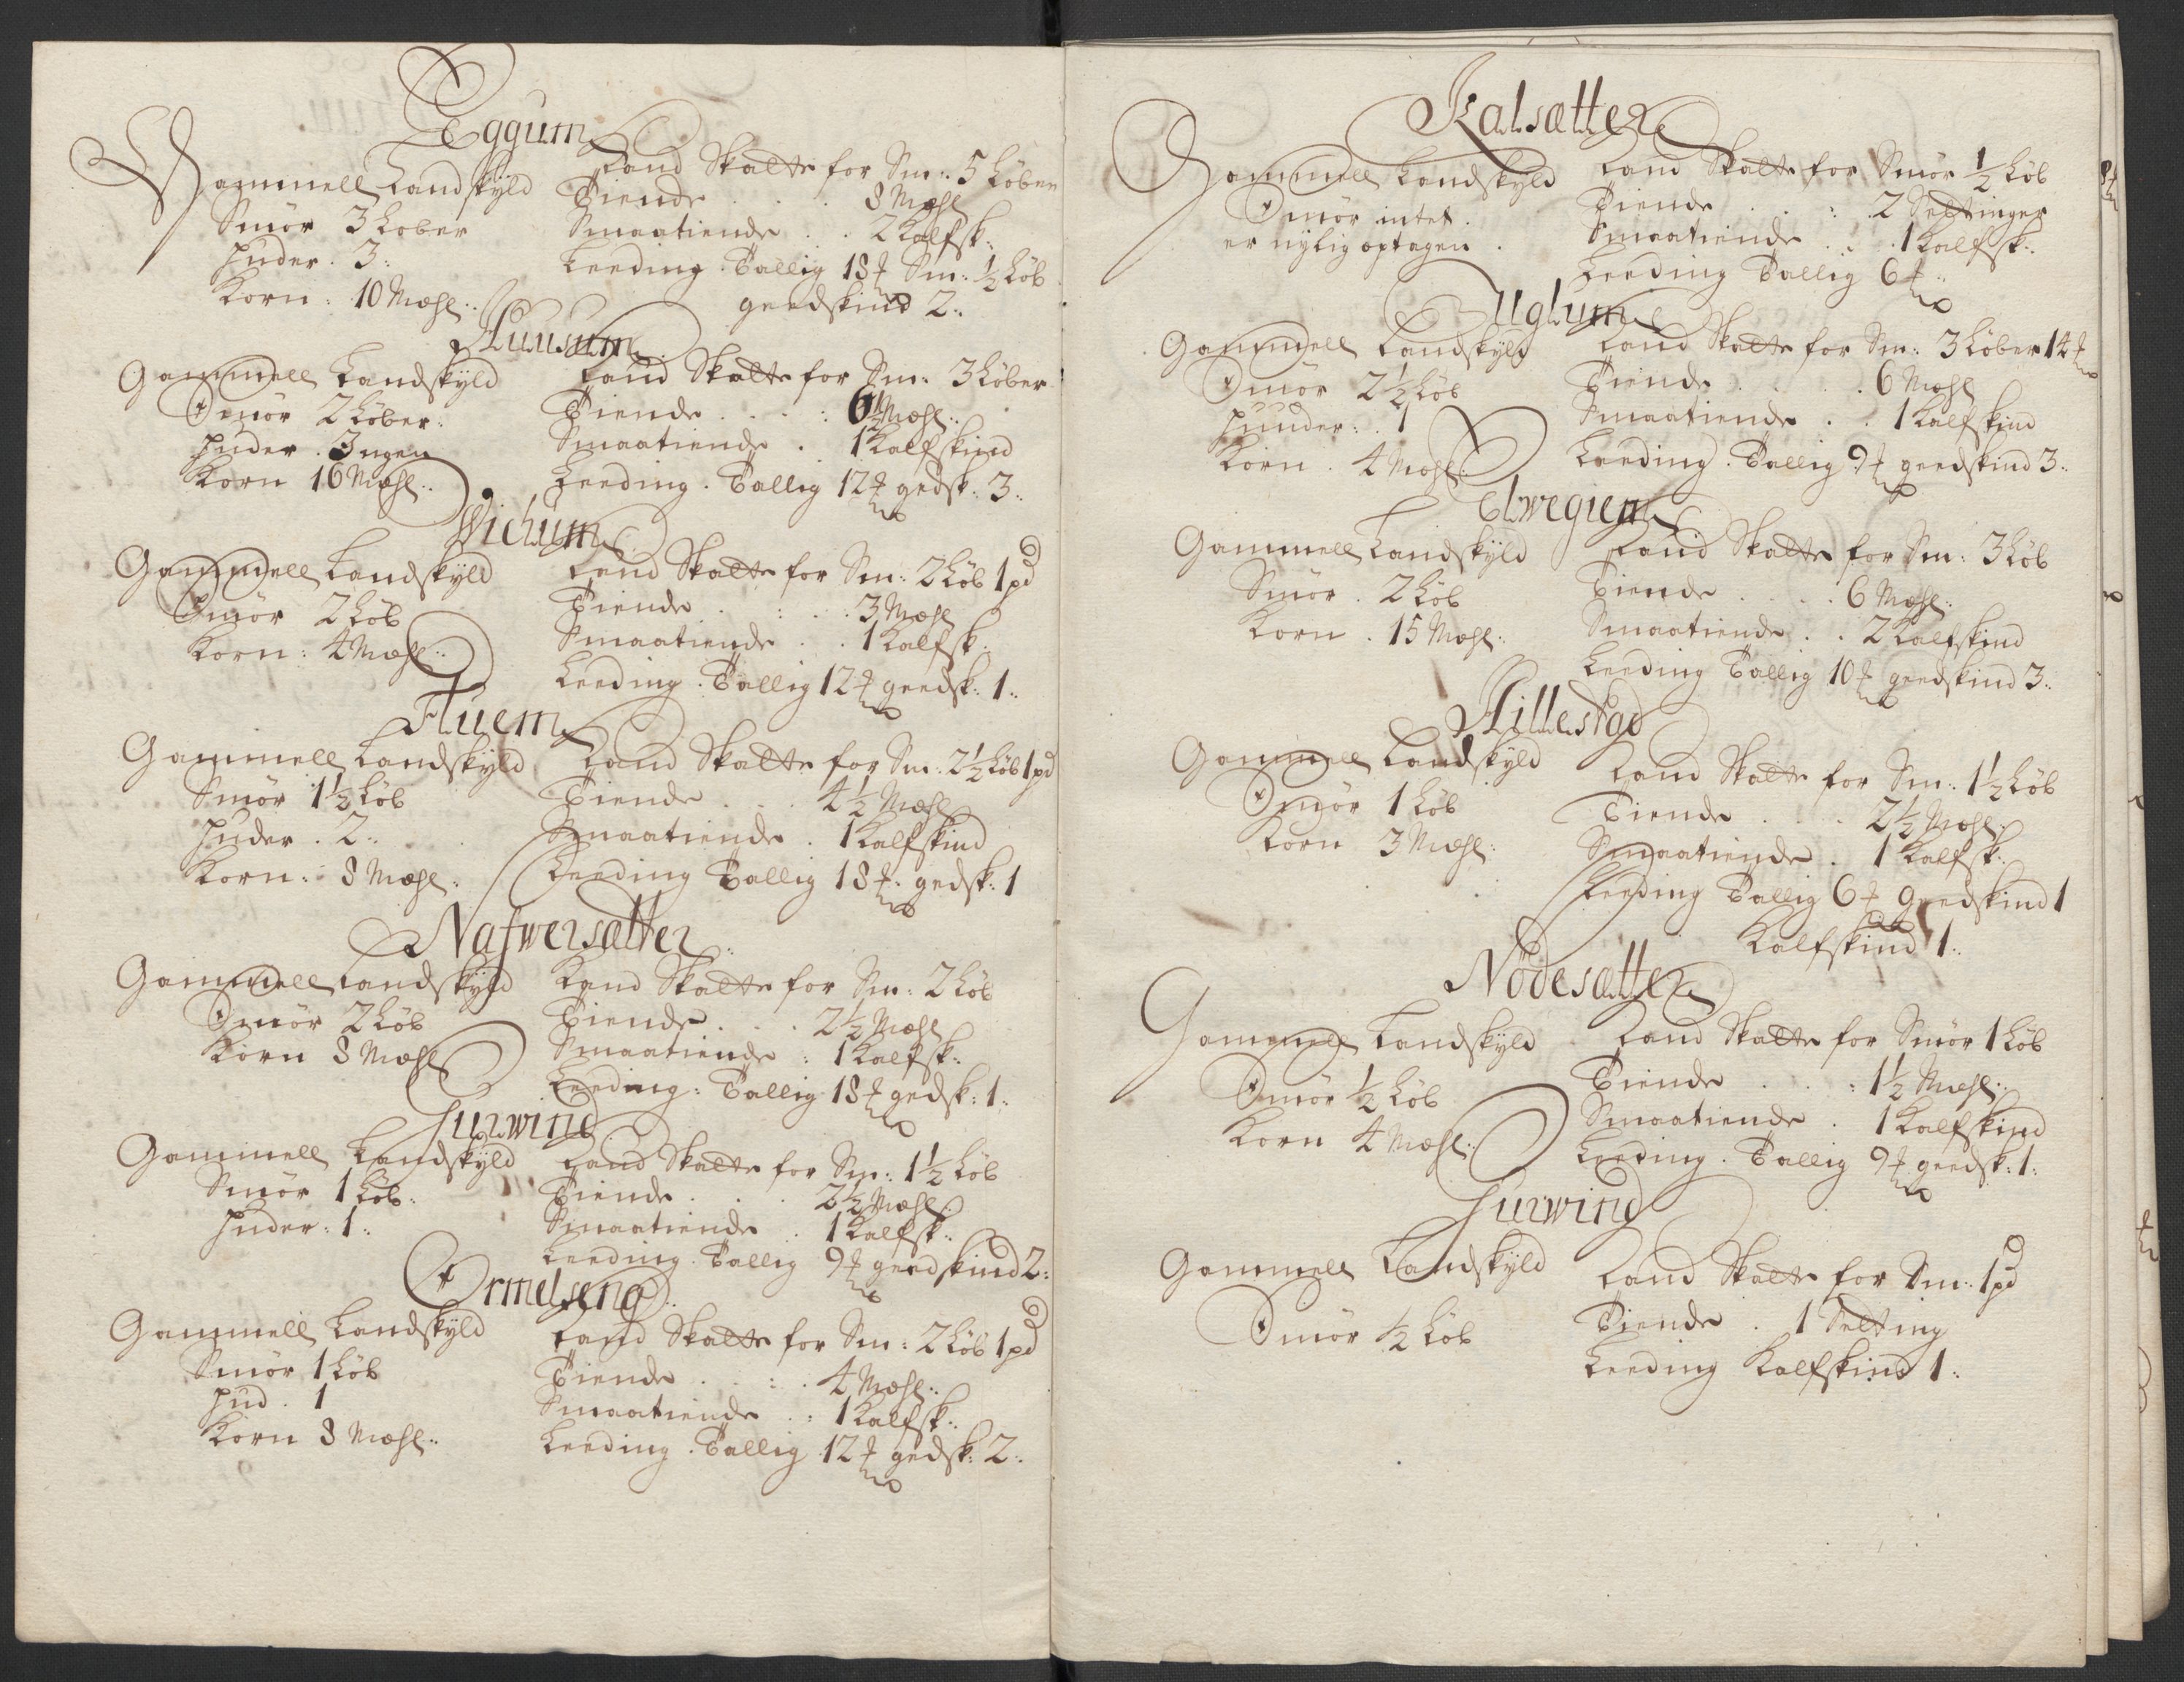 Eggum
Gammell Landskyld
Smør 3 Løber
Huder. 3.
Korn: 10 Mæhl:
Land Skatte for Sm: 5 Løber
Tiende . . . 8 Mæhl
Smaatiende . . 2 Kalfsk:
Leeding. Tallig 18 ℔ Sm: ½ Løb
geedskind 2.
Huusum
Gammell Landskyld
Smør 2 Løber:
Huder. Ingen
Korn 16 Mæhl:
Land Skatte for Sm: 3 Løber
Tiende . . . : Mæhl:
Smaatiende . 1 Kalfskind
Leeding. Tallig 12 ℔ gedsk: 3.
Wichum
Gammell Landskyld
Smør 2 Løb
Korn: 4 Mæhl:
Land Skatte for Sm: 2 Løb 1 pd
Tiende . : . . 3 Mæhl
Smaatiende . . 1 Kalfsk:
Leeding. Tallig 12 ℔ geedsk: 1.
Huem
Gammell Landskyld
Smør 1½ Løb
Huder. 2.
Korn: 8 Mæhl:
Land Skatte for Sm: 2½ Løb 1 pd
Tiende . . . 4½ Mæhl
Smaatiende . 1 Kalfskind
Leeding Tallig 18 ℔: gedsk: 1
Nafwersætter
Gammell Landskyld
Smør 2 Løb
Korn 8 Mæhl
Land Skatte for Sm: 2 Løb
Tiende . . . 2½ Mæhl
Smaatiende : 1 Kalfsk:
Leeding: Tallig 18 ℔ gedsk: 1.
Furwind
Gammell Landskyld
Smør 1 Løb:
Huder: 1.
Land Skatte for Sm: 1½ Løb
Tiende . . . 2½ Mæhl:
Smaatiende . 1 Kalfsk:
Leeding. Tallig 9 ℔ geedskind 2:
Ormelseng
Gammell Landskyld
Smør 1 Løb
Hud. 1
Korn 8 Mæhl:
Land Skatte for Sm: 2 Løb 1 pd
Tiende . . : . 4 Mæhl:
Smaatiende . : 1 Kalfsk:
Leeding. Tallig 12 ℔ gedsk: 2.
Kalsætter
Gammell Landskyld
Smør intet.
er nylig optagen.
Land Skatte for Smør ½ Løb
Tiende . . : . 2 Seltinger
Smaatiende . . . 1 Kalfsk:
Leeding Tallig 6 ℔:
Uglum
Gammell Landskyld
Smør 2½ Løb
Huuder: . 1
Korn. 4 Mæhl:
Land Skatte for Sm: 3 Løber 14 ℔
Tiende . . . . . 6 Mæhl
Smaatiende . . 1 Kalfskind
Leeding. Tallig 9 ℔ geedskind 3.
Elwegiem
Gammell Landskyld
Smør. 2 Løb
Korn. 15 Mæhl:
Land Skatte for Sm: 3 Løb
Tiende . . . . 6 Mæhl:
Smaatiende . . 2 Kalfskind
Leeding Tallig 10 ℔ geedskind 3.
Hillestad
Gammell Landskyld
Smør 1 Løb
Korn 3 Mæhl:
Land Skatte for Sm: 1½ Løb
Tiende . . . 2½ Mæhl:
Smaatiende . 1 Kalfsk:
Leeding Tallig 6 ℔ Geedskind 1
Kalfskind 1.
Nødesætter
Gammell Landskyld
Smør ½ Løb
Korn 4 Mæhl:
Land Skatte for Smør 1 Løb
Tiende . . . : 1½ Mæhl:
Smaatiende . 1 Kalfskind
Leeding. Tallig 9 ℔ geedsk: 1.
Furwind
Gammell Landskyld
Smør ½ Løb
Land Skatte for Sm: 1 pd
Tiende . 1 Selting
Leeding Kalfskind 1.